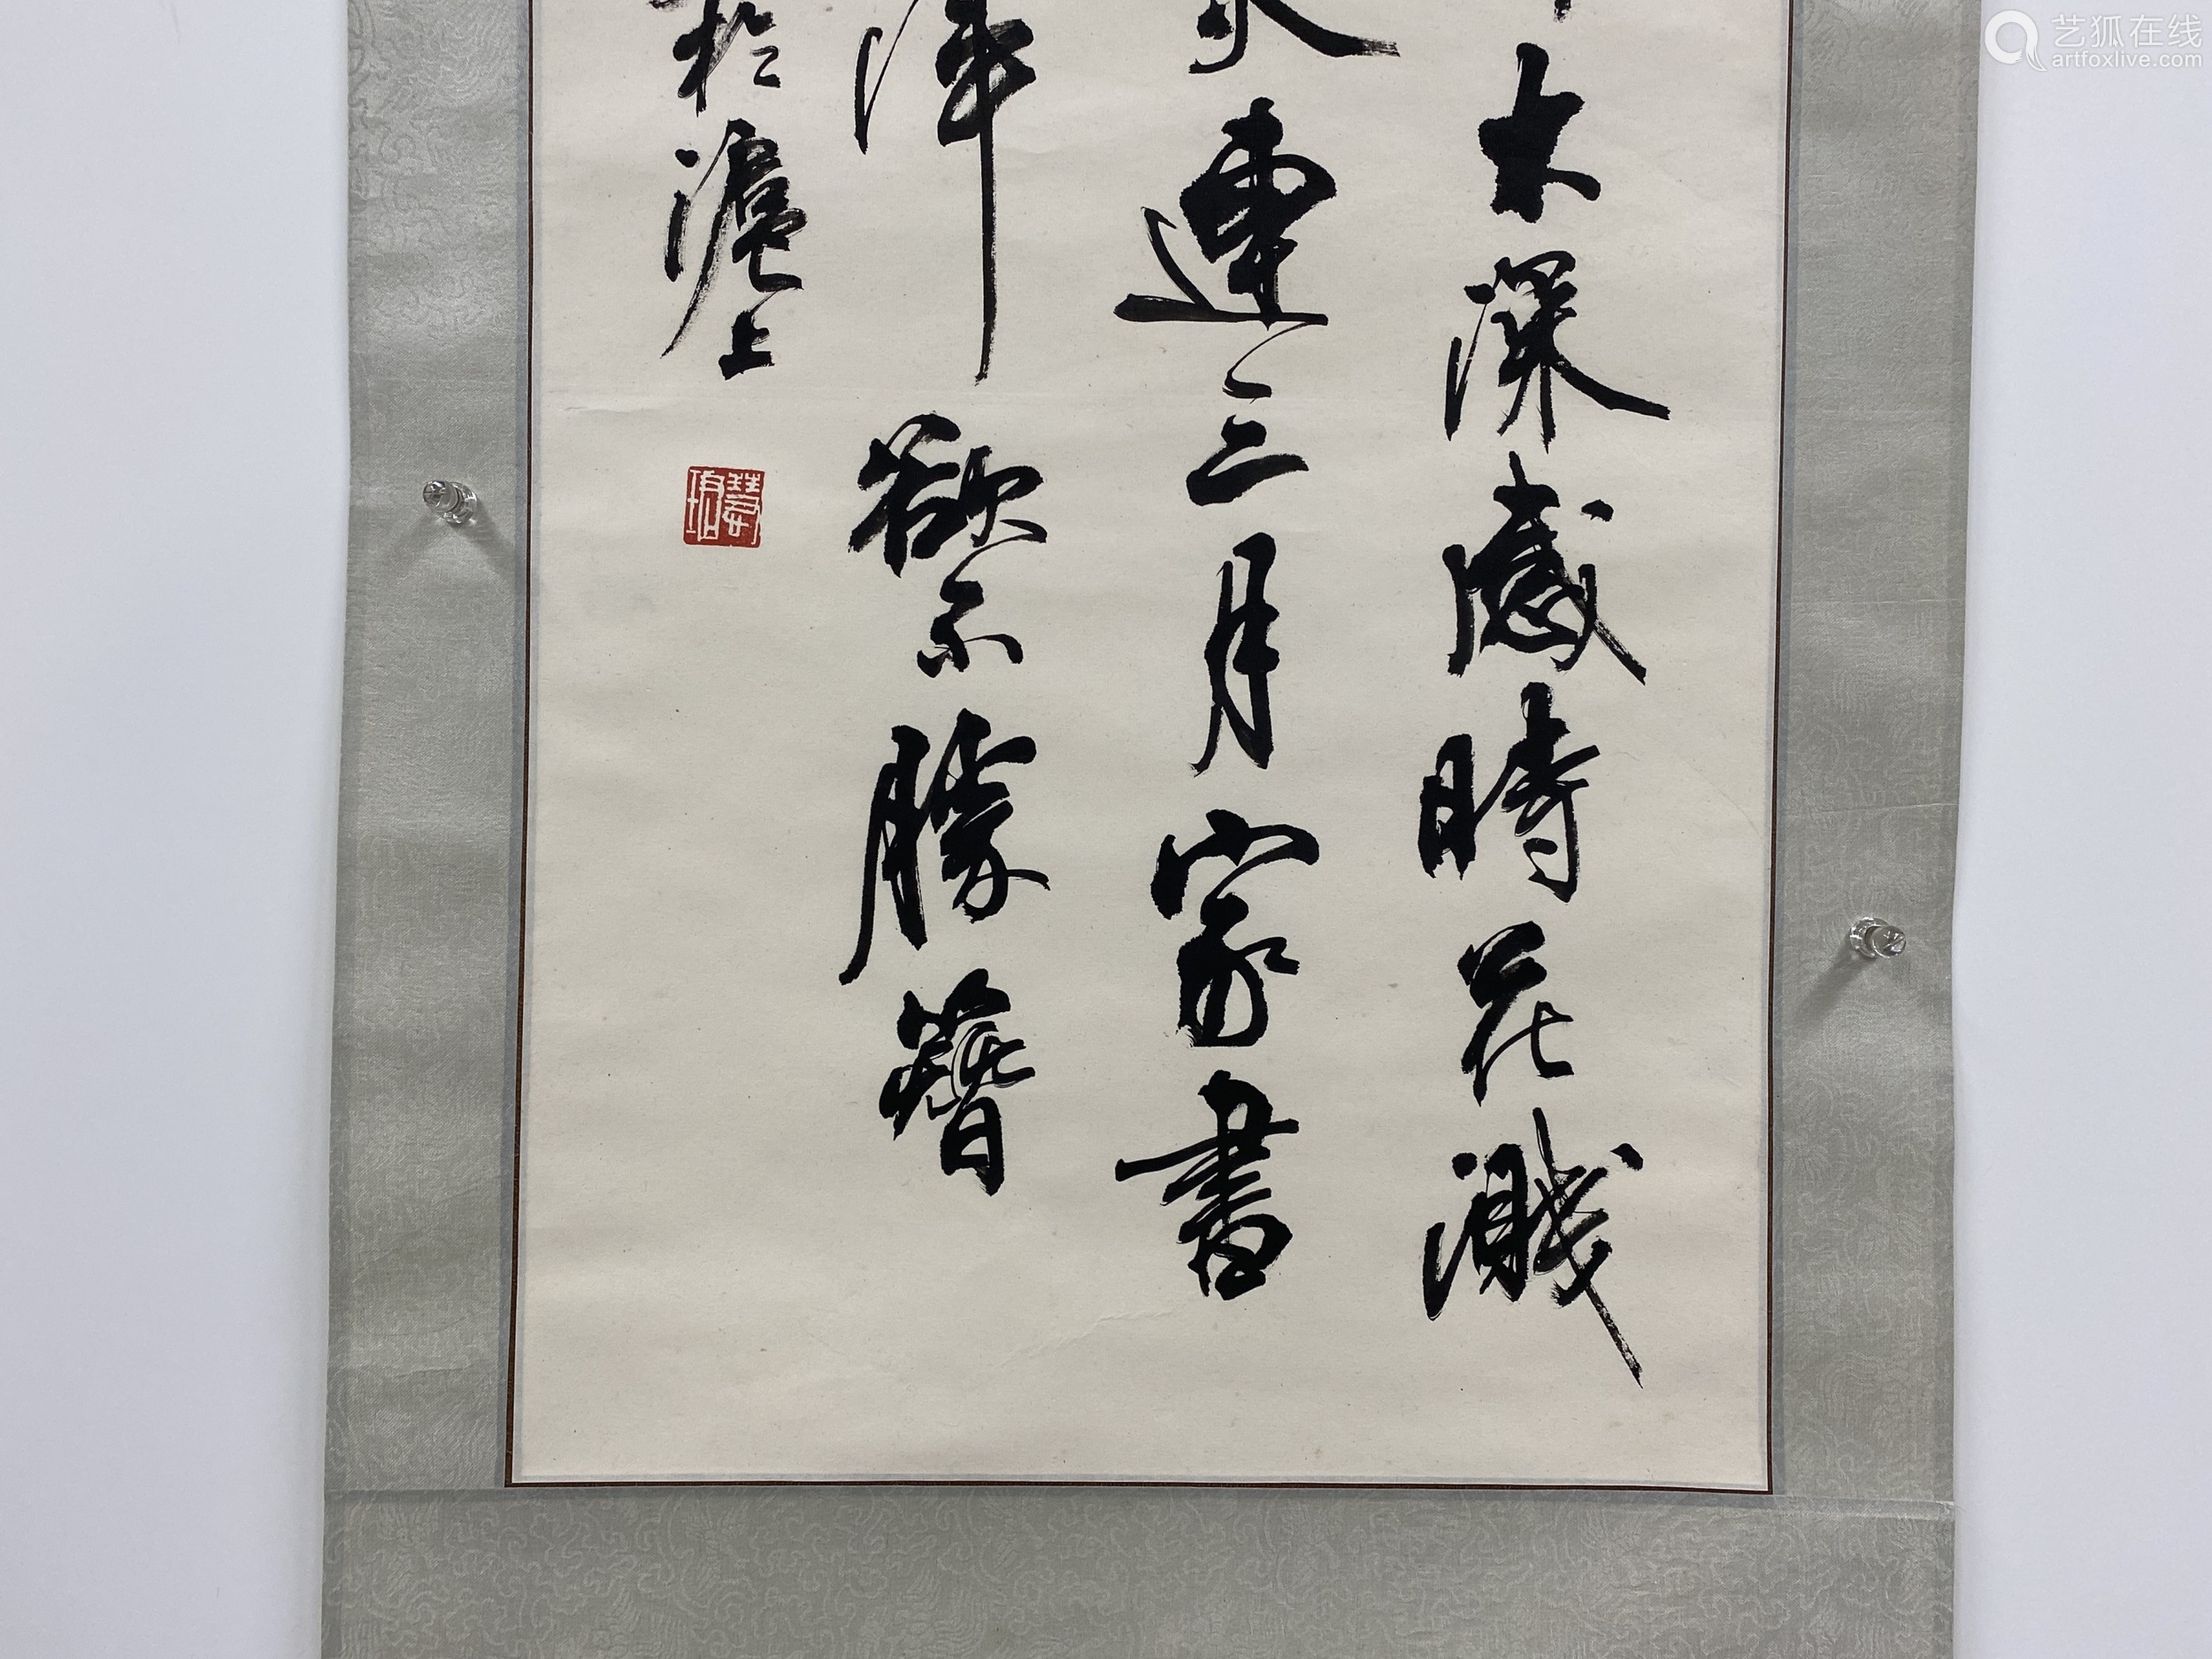 木深感時花濺
火連三月家書
渾欲不勝簪
於滬上
艺狐在线
artfoxlive.com